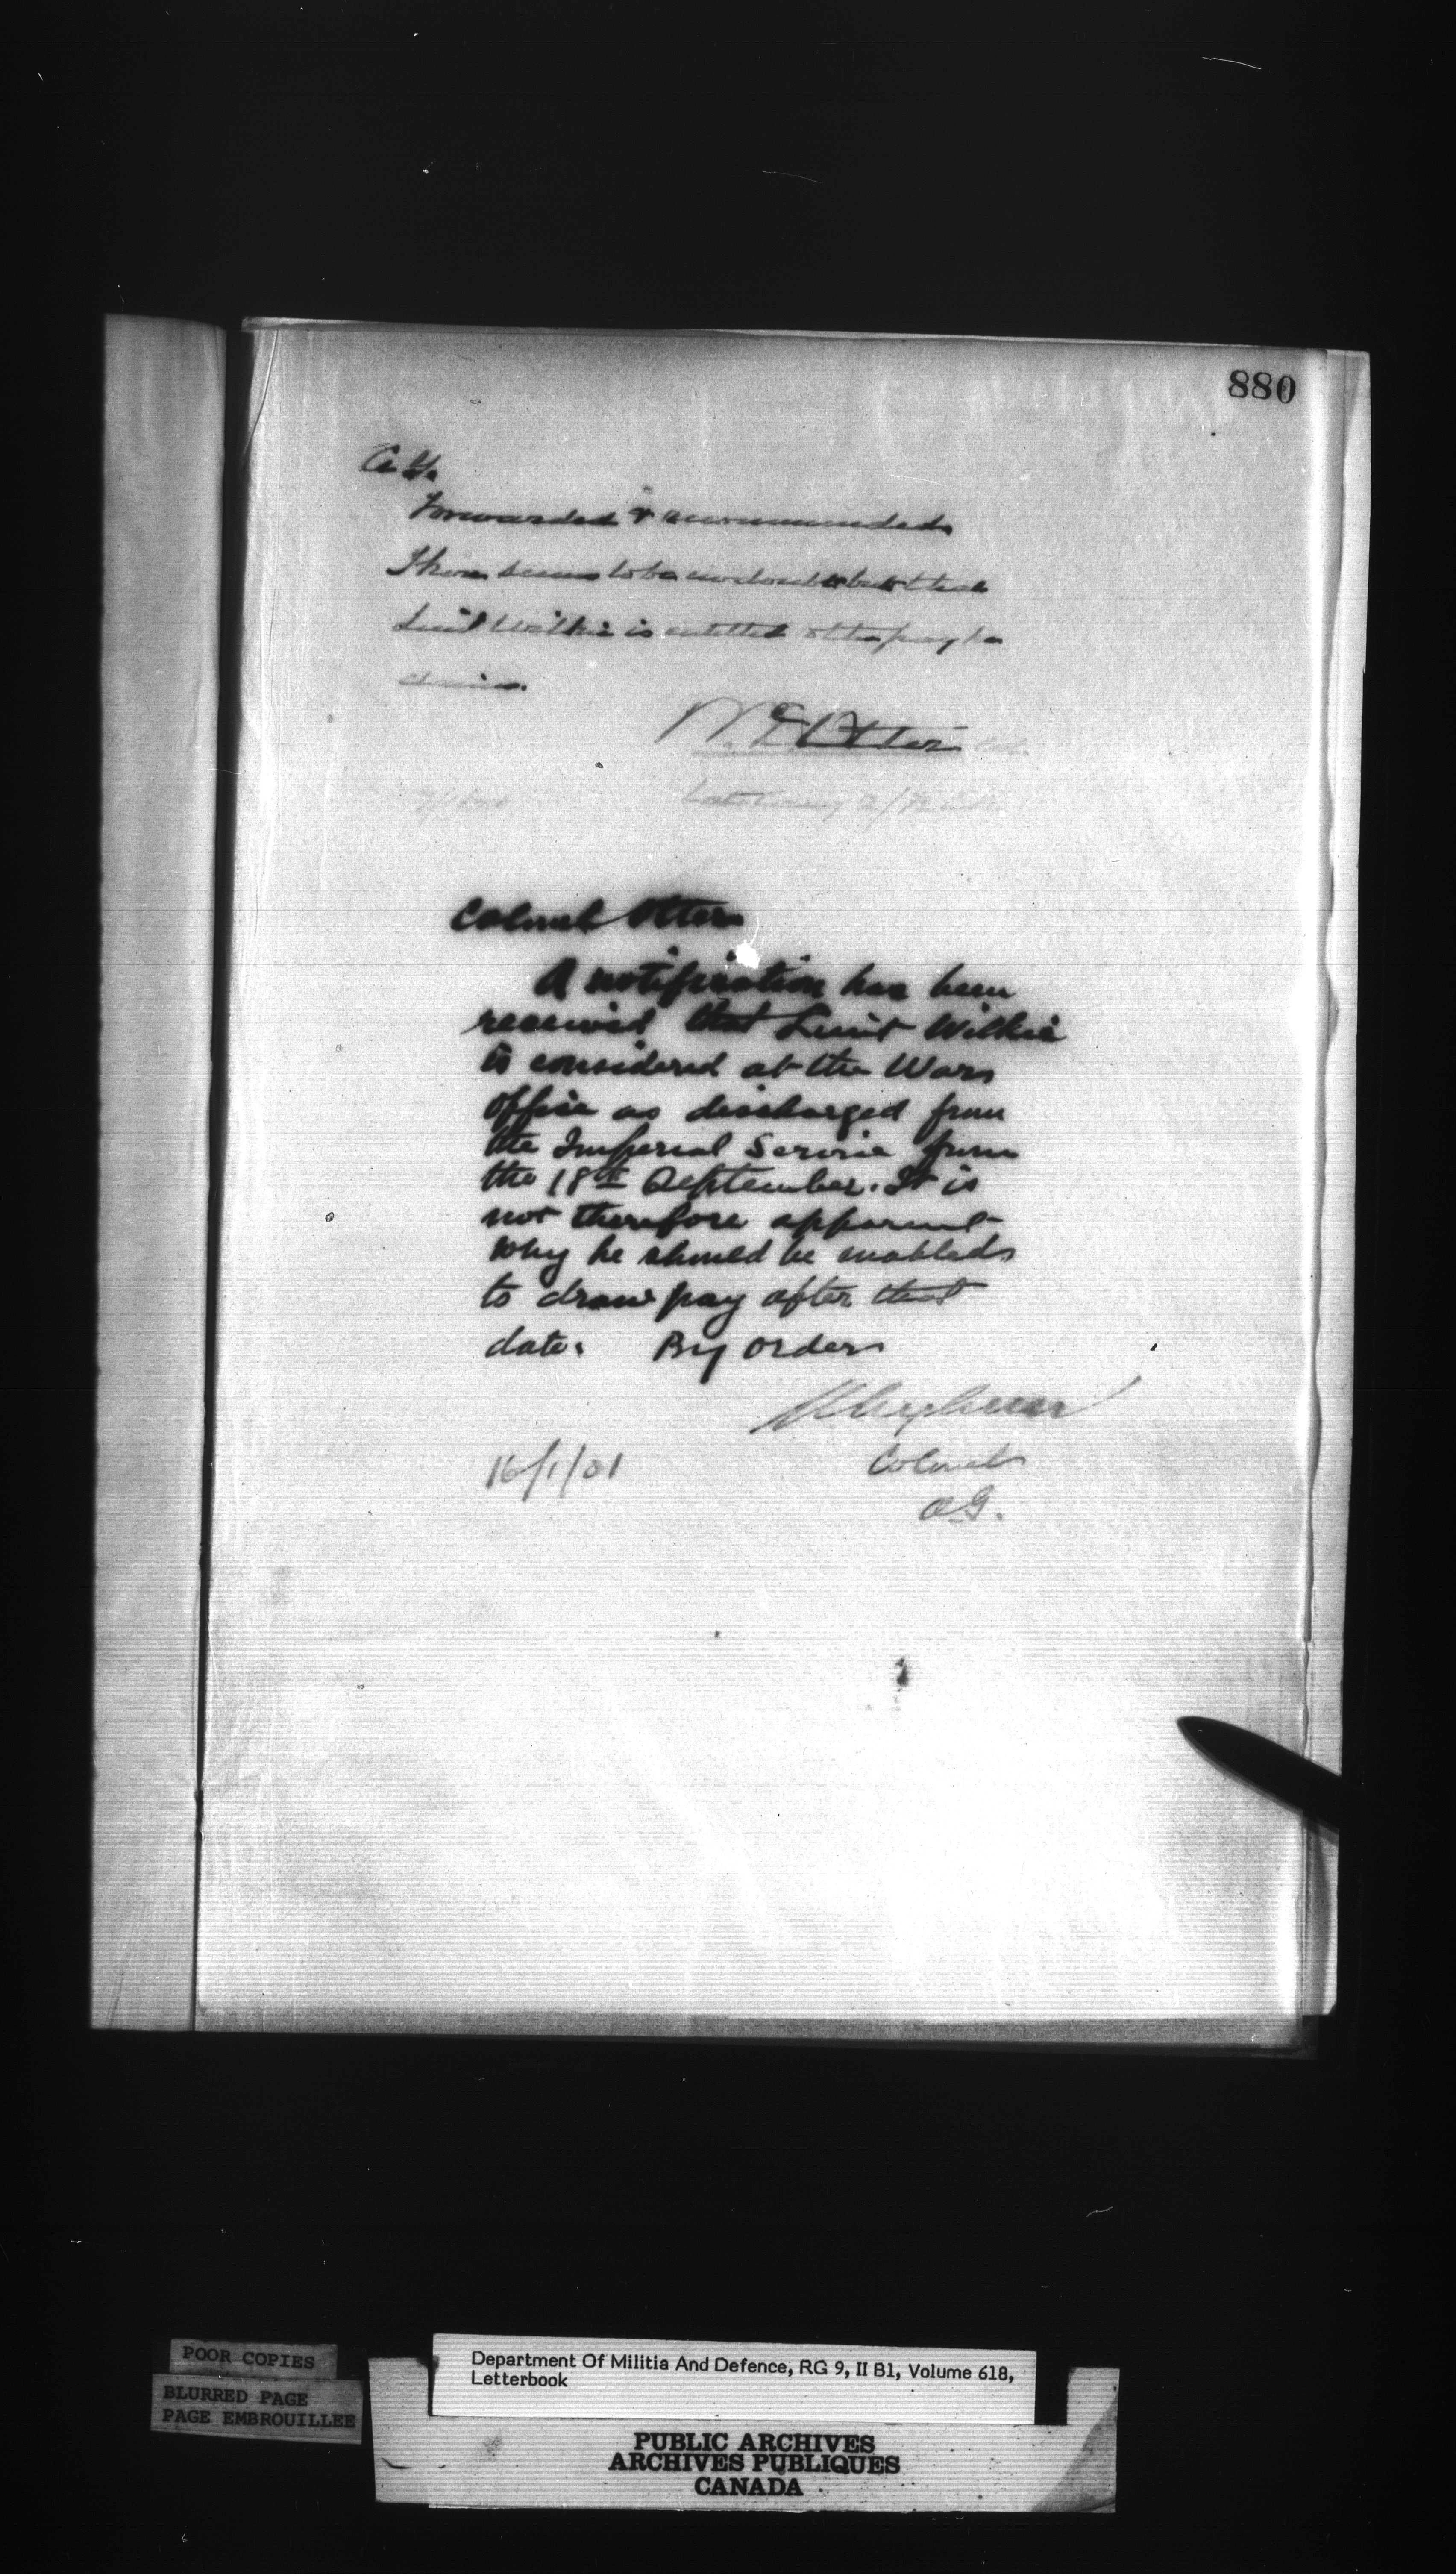 880
A.G.
Forwarded & recommended
There seems to be no doubt but that
Lieut Wilkie is entitled to the pay he
claims.
W D Otter Col.
Late Comg 2/R.C.R.
Colonel Otter
A notification has been
received that Lieut Wilkie
is considered at the War
Office as discharged from
the Imperial Service from
the 18th September. It is
not therefore apparent
why he should be enabled
to draw pay after that
date. By Order
16/1/01
Colonel
A.G.
POOR COPIES
BLURRED PAGE
PAGE EMBROUILLEE
Department Of Militia And Defence, RG 9, II B1, Volume 618,
Letterbook
PUBLIC ARCHIVES
ARCHIVES PUBLIQUES
CANADA